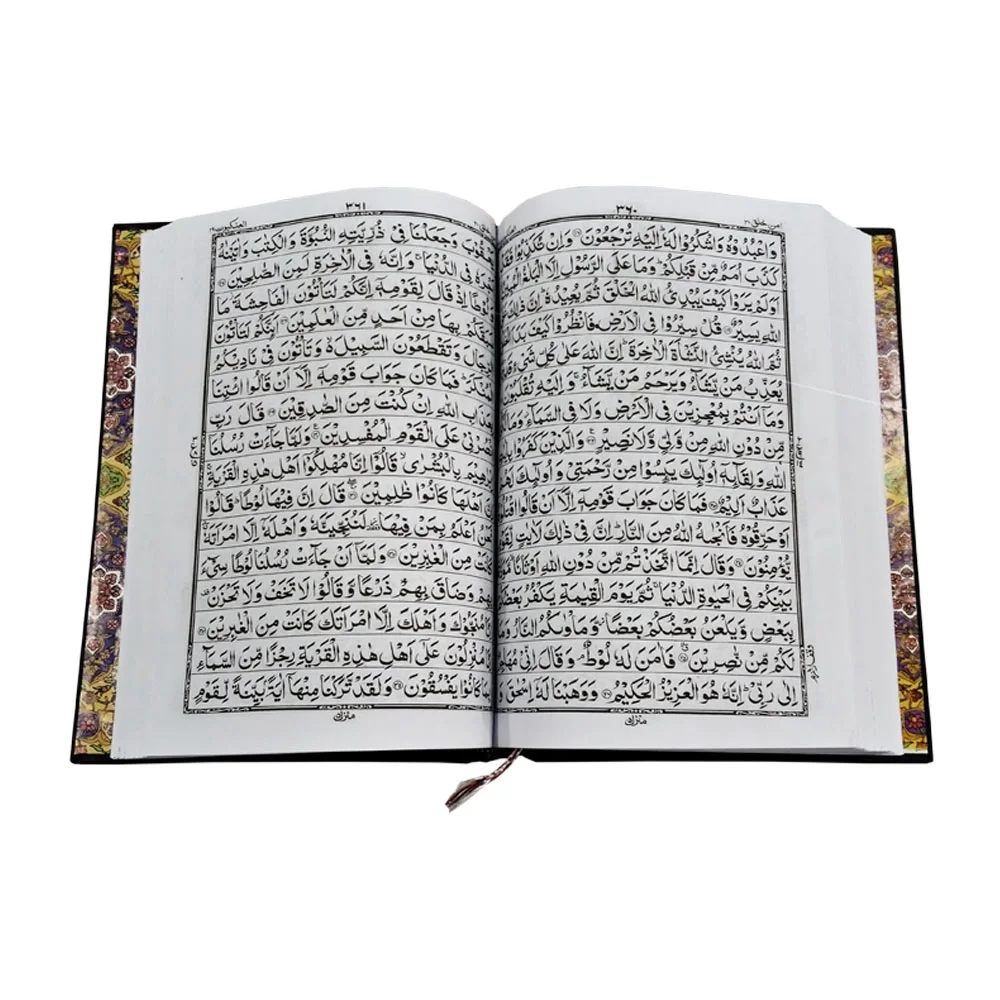 ٣٦٠
امن خلق ٢٠
وَاعْبُدُوْهُ وَاشْكُرُوْا لَهٗ ؕ اِلَيْهِ تُرْجَعُوْنَ ﴿۱۷﴾ وَاِنْ تُكَذِّبُوْا فَقَدْ
كَذَّبَ اُمَمٌ مِّنْ قَبْلِكُمْ ؕ وَمَا عَلَى الرَّسُوْلِ اِلَّا الْبَلٰغُ
اَوَلَمْ يَرَوْا كَيْفَ يُبْدِئُ اللّٰهُ الْخَلْقَ ثُمَّ يُعِيْدُهٗ ؕ اِنَّ ذٰلِكَ
اللّٰهِ يَسِيْرٌ ﴿۱۹﴾ قُلْ سِيْرُوْا فِى الْاَرْضِ فَانْظُرُوْا كَيْفَ بَدَاَ
ثُمَّ اللّٰهُ يُنْشِئُ النَّشْاَةَ الْاٰخِرَةَ ؕ اِنَّ اللّٰهَ عَلٰى كُلِّ شَىْءٍ
يُعَذِّبُ مَنْ يَّشَآءُ وَيَرْحَمُ مَنْ يَّشَآءُ ۚ وَاِلَيْهِ تُقْلَبُوْنَ
وَمَاۤ اَنْتُمْ بِمُعْجِزِيْنَ فِى الْاَرْضِ وَلَا فِى السَّمَآءِ ؗ وَمَا
مِّنْ دُوْنِ اللّٰهِ مِنْ وَّلِىٍّ وَّلَا نَصِيْرٍ ﴿۲۲﴾ وَالَّذِيْنَ كَفَرُوْا
اللّٰهِ وَلِقَآئِهٖۤ اُولٰٓئِكَ يَئِسُوْا مِنْ رَّحْمَتِىْ وَاُولٰٓئِكَ
عَذَابٌ اَلِيْمٌ ﴿۲۳﴾ فَمَا كَانَ جَوَابَ قَوْمِهٖۤ اِلَّاۤ اَنْ قَالُوا
اَوْ حَرِّقُوْهُ فَاَنْجٰىهُ اللّٰهُ مِنَ النَّارِ ؕ اِنَّ فِىْ ذٰلِكَ لَاٰيٰتٍ
يُّؤْمِنُوْنَ ﴿۲۴﴾ وَقَالَ اِنَّمَا اتَّخَذْتُمْ مِّنْ دُوْنِ اللّٰهِ اَوْثَانًا
بَيْنِكُمْ فِى الْحَيٰوةِ الدُّنْيَا ۚ ثُمَّ يَوْمَ الْقِيٰمَةِ يَكْفُرُ بَعْضُكُمْ
بِبَعْضٍ وَّيَلْعَنُ بَعْضُكُمْ بَعْضًا ؗ وَّمَاْوٰىكُمُ النَّارُ
لَكُمْ مِّنْ نّٰصِرِيْنَ ﴿۲۵﴾ فَاٰمَنَ لَهٗ لُوْطٌ ۘ وَقَالَ اِنِّىْ
اِلٰى رَبِّىْ ؕ اِنَّهٗ هُوَ الْعَزِيْزُ الْحَكِيْمُ ﴿۲۶﴾ وَوَهَبْنَا لَهٗۤ اِسْحٰقَ
٣٦١
العنكبوت
وَجَعَلْنَا فِىْ ذُرِّيَّتِهِ النُّبُوَّةَ وَالْكِتٰبَ وَاٰتَيْنٰهُ
فِى الدُّنْيَا ۚ وَاِنَّهٗ فِى الْاٰخِرَةِ لَمِنَ الصّٰلِحِيْنَ ﴿۲۷﴾
اِذْ قَالَ لِقَوْمِهٖۤ اِنَّكُمْ لَتَاْتُوْنَ الْفَاحِشَةَ ؗ مَا
بِهَا مِنْ اَحَدٍ مِّنَ الْعٰلَمِيْنَ ﴿۲۸﴾ اَئِنَّكُمْ لَتَاْتُوْنَ
وَتَقْطَعُوْنَ السَّبِيْلَ ۙ وَتَاْتُوْنَ فِىْ نَادِيْكُمُ
فَمَا كَانَ جَوَابَ قَوْمِهٖۤ اِلَّاۤ اَنْ قَالُوا ائْتِنَا
اللّٰهِ اِنْ كُنْتَ مِنَ الصّٰدِقِيْنَ ﴿۲۹﴾ قَالَ رَبِّ
عَلَى الْقَوْمِ الْمُفْسِدِيْنَ ﴿۳۰﴾ وَلَمَّا جَآءَتْ رُسُلُنَاۤ
بِالْبُشْرٰى ۙ قَالُوْۤا اِنَّا مُهْلِكُوْۤا اَهْلِ هٰذِهِ الْقَرْيَةِ ۚ
اَهْلَهَا كَانُوْا ظٰلِمِيْنَ ﴿۳۱﴾ قَالَ اِنَّ فِيْهَا لُوْطًا ؕ قَالُوْا
اَعْلَمُ بِمَنْ فِيْهَا ؗ لَنُنَجِّيَنَّهٗ وَاَهْلَهٗۤ اِلَّا امْرَاَتَهٗ
مِنَ الْغٰبِرِيْنَ ﴿۳۲﴾ وَلَمَّاۤ اَنْ جَآءَتْ رُسُلُنَا لُوْطًا سِىْٓءَ
وَضَاقَ بِهِمْ ذَرْعًا وَّقَالُوْا لَا تَخَفْ وَلَا تَحْزَنْ
مُنَجُّوْكَ وَاَهْلَكَ اِلَّا امْرَاَتَكَ كَانَتْ مِنَ الْغٰبِرِيْنَ ﴿۳۳﴾
مُنْزِلُوْنَ عَلٰٓى اَهْلِ هٰذِهِ الْقَرْيَةِ رِجْزًا مِّنَ السَّمَآءِ
كَانُوْا يَفْسُقُوْنَ ﴿۳۴﴾ وَلَقَدْ تَّرَكْنَا مِنْهَاۤ اٰيَةًۢ بَيِّنَةً لِّقَوْمٍ